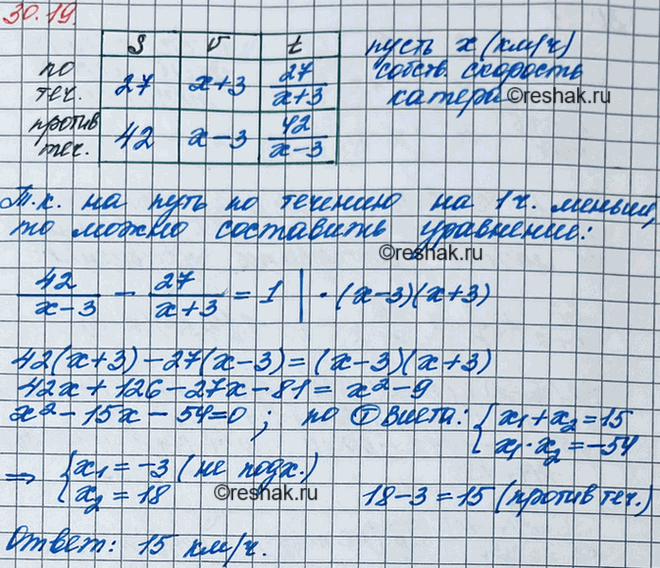 30.19.
S v t
по теч. 27 x+3 27/(x+3)
против теч. 42 x-3 42/(x-3)
пусть x (км/ч)
собств. скорость
катера ©reshak.ru
Т.к. на путь по течению на 1 ч. меньше,
то можно составить уравнение:
©reshak.ru
42/(x-3) - 27/(x+3) = 1 | · (x-3)(x+3)
42(x+3)-27(x-3)=(x-3)(x+3)
42x+126-27x-81=x²-9
x²-15x-54=0; по Т Виета: { x₁+x₂=15
x₁·x₂=-54
⇒ { x₁=-3 (не подх.)
x₂=18
©reshak.ru
18-3=15 (против теч.)
Ответ: 15 км/ч.